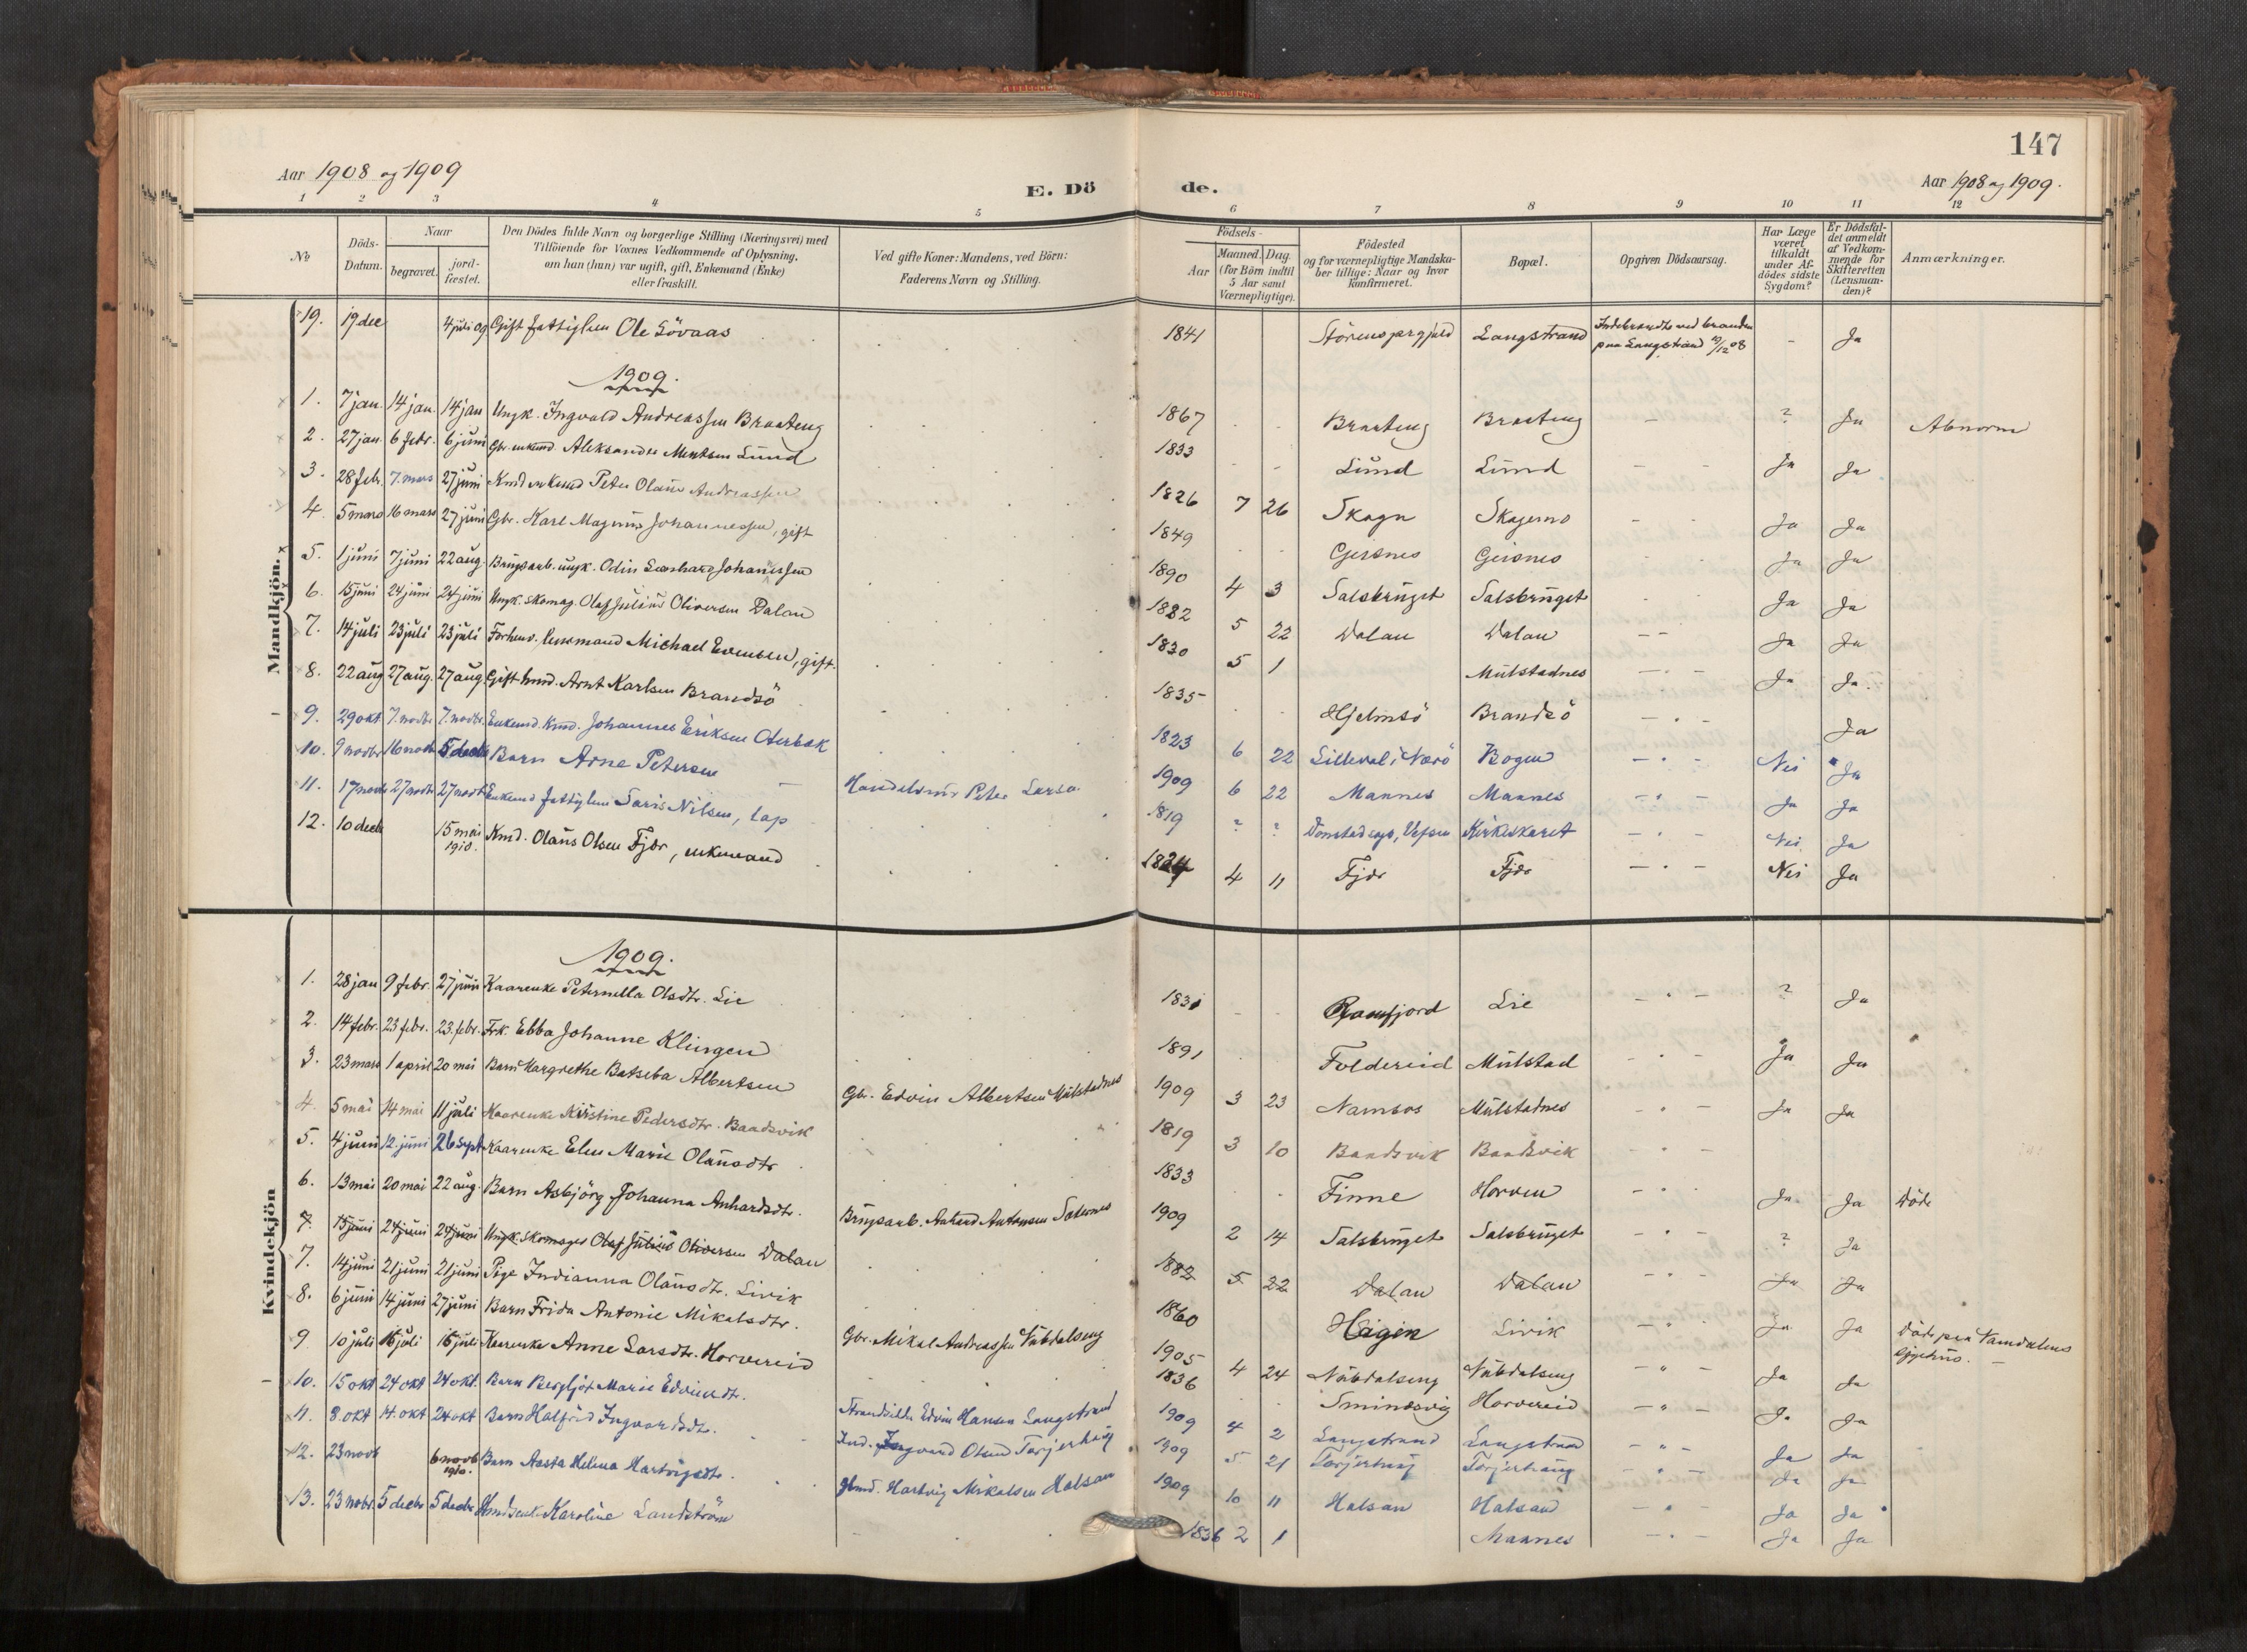 147
Aar 1908 og 1909
E. Dö de.
Aar 1908 og 1909.
1 2 3 4 5 6 7 8 9 10 11 12
No
Döds-Datum.
Naar
begravet.
jord-fæstet.
Den Dödes fulde Navn og borgerlige Stilling (Næringsvei) med
Tilföiende for Voxnes Vedkommende af Oplysning,
om han (hun) var ugift, gift, Enkemand (Enke)
eller fraskilt.
Ved gifte Koner: Mandens, ved Börn:
Faderens Navn og Stilling.
Födsels-
Aar
Maaned. Dag.
(for Börn indtil
5 Aar samt
Værnepligtige).
Födested
og for værnepligtige Mandska-
ber tillige: Naar og hvor
konfirmeret.
Bopæl.
Opgiven Dödsaarsag.
Har Læge
været
tilkaldt
under Af-
dödes sidste
Sygdom?
Er Dödsfal-
det anmeldt
af Vedkom-
mende for
Skifteretten
(Lensman-
den)?
Anmærkninger.
Mandkjön.
19. 19 dec 4 juli 09 Gift fattiglem Ole Lövaas 1841 Störens prgjeld Langstrand Indebrændte ved branden paa Langstrand 19/12 08 - Ja
1909.
1. 7 jan. 14 jan. 14 jan Ungk. Ingvald Andreassen Braateng 1867 Braateng Braateng - ? Ja Abnorm
2. 27 jan. 6 febr. 6 juni Gbr. enkemd. Aleksander Mentsen Lund 1833 - - Lund Lund - - Ja Ja
3. 28 febr. 7. mars 27 juni Kmd enkemd Peter Olaus Andreassen 1826 7 26 Skage Skagemo - - Ja Ja
4. 5 mars 16 mars 27 juni Gbr. Karl Magnus Johannessen, gift 1849 Geisnes Geisnes Ja Ja
5. 1 juni 7 juni 22 aug. Brugsarb. ungk. Odin Leonhard Johanessen 1890 4 3 Salsbruget Salsbruget Ja Ja
6. 15 juni 24 juni 24 juni Ungk. skomag. Olaf Julius Oliversen Dalan 1882 5 22 Dalan Dalan - - Ja Ja
7. 14 juli 23 juli 23 juli Forhenv. lensmand Michael Evensen, gift. 1830 5 1 Mulstadnes Ja Ja.
8. 22 aug 27 aug. 27 aug. Gift hmd. Arnt Karlsen Brandsö 1835 - - Hjelmsö Brandsö - Ja
9. 29 okt 7. novbr. 7. novbr. Enkemd. Kmd. Johannes Eriksen Oterbæk 1823 6 22 Lilleval i Nærö Bogen - Nei Ja
10. 9 novbr 16 novbr 5 decbr Barn Arne Petersen Handelsmand Peter Larsen 1909 6 22 Mannes Mannes - Ja Ja
11. 17 novbr 27 novbr 27 novbr Enkemd fattiglem Saris Nilsen, lap 1819 ? ? Kirkeskaret - Nei Ja
12. 10 decbr 15 mai 1910. Kmd. Olaus Olsen Fjær, enkemand 1824 4 11 Fjær Fjær - Nei Ja
Kvindekjön
1909.
1. 28 jan 9 febr. 27 juni Kaarenke Peternella Olsdtr. Lie 1831 - - Lie - ? Ja
2. 14 febr. 23 febr. 23. febr. Frk. Ebba Johanne Klingen 1891 Foldereid Mulstad - Ja Ja
3. 23 mars 1 april 20 mai Barn Margrethe Batseba Albertsen Gbr. Edvin Albertsen Mulstadnes 1909 3 23 Namsos Mulstadnes - Ja Ja
4. 5 mai 14 mai 11 juli Kaarenke Kirstine Pedersdtr. Baadsvik 1819 3 10 Baadsvik Baadsvik -
5. 4 juni 12. juni 26 sept Kaarenke Elen Marie Olausdtr 1833 Finne Horven - Ja Ja Döde
6. 13 mai 20 mai 22 aug. Barn Asbjörg Johanna Anhardsdtr. Brugsarb. Anhard Antonsen 1909 2 14 Salsbruget Salsbruget - ? Ja
7. 15 juni 24 juni 24 juni Ungk. skomager Olaf Julius Oliversen Dalan 1882 5 22 Dalan Dalan - Ja Ja
7. 14 juni 21 juni 21 juni Pige Indianna Olausdtr. Livik 1860 Livik - Ja Ja Döde paa Namdalens sygehus.
8. 6 juni 14 juni 27 juni Barn Frida Antonie Mikalsdtr. Gbr. Mikal Andreassen Nubdalseng 1905 4 24 Nubdalseng Nubdalseng - Ja Ja
9 10 juli 16 juli 16 juli Kaarenke Anne Larsdtr. Horvereid 1836 Horvereid - Ja Ja
10. 15 okt 24 okt 24 okt. Barn Bergljot Marie Edvinsdtr. Strandsidder Edvin Hansen Langstrand 1909 4 2 Langstrand Langstrand - Ja Ja
11. 8. okt 14. okt 24 okt Barn Halfrid Ingvardsdtr. Ind. Ingvard Olsen Torjerhaug 1909 5 21 Torjerhaug Torjerhaug - Ja Ja
12. 23 novb 6 novb 1910. Barn Aasta Helena Hartvigsdtr. Hmd. Hartvig Mikalsen Halsan 1909 10 11 Halsan Halsan - Ja Ja
13. 23 novbr. 5 decbr 5 decbr Karoline Landström 1836 2 1 Mannes - Ja Ja